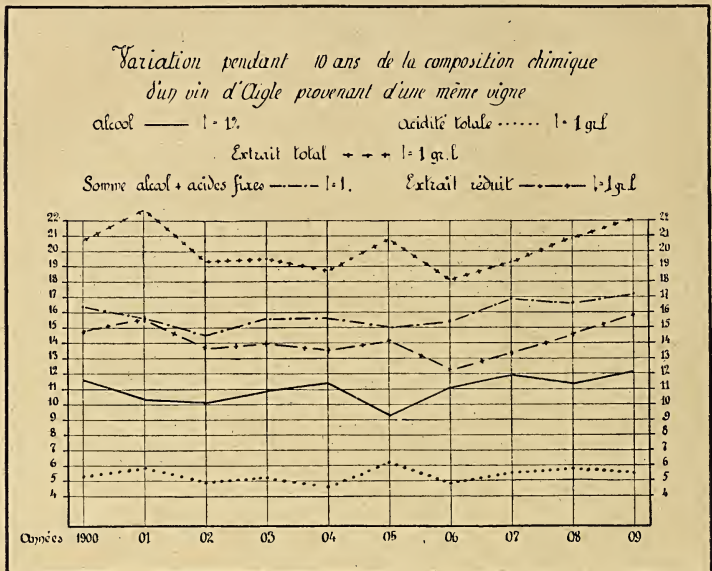 Variation pendant 10 ans de la composition chimique
d'un vin d'Aigle provenant d'une même vigne
alcool —— 1 = 1%  acidité totale ······ 1 = 1 gr.l
Extrait total + + + 1 = 1 gr.l
Somme alcool + acides fixes —·—·— 1 = 1.  Extrait réduit —+—+ 1 = 1 gr.l
22 22
21 21
20 20
19 19
18 18
17 17
16 16
15 15
14 14
13 13
12 12
11 11
10 10
9 9
8 8
7 7
6 6
5 5
4 4
Années 1900 01 02 03 04 05 06 07 08 09